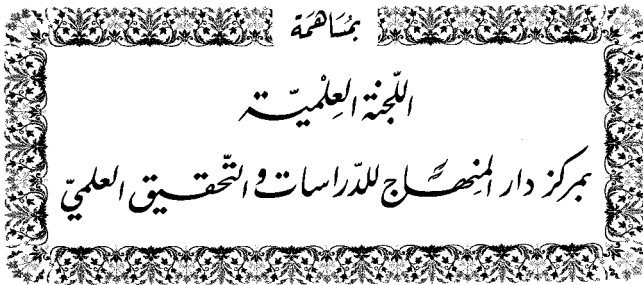 بمُسَاهَمَة
اللّجنة العِلْميّة
بمركز دار المِنهَاج للدّراسات والتّحقيق العلميّ